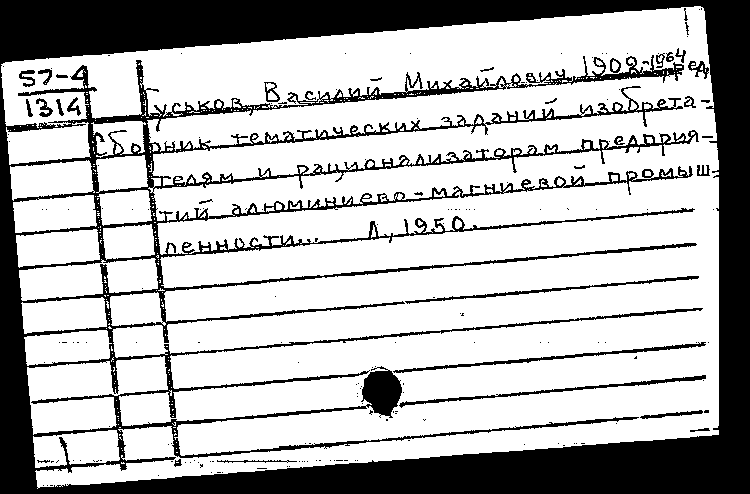 57-4
1314
Гуськов, Василий Михайлович, 1909-1964, ред.
Сборник тематических заданий изобрета-
телям и рационализаторам предприя-
тий алюминиево-магниевой промыш-
ленности... Л., 1950.